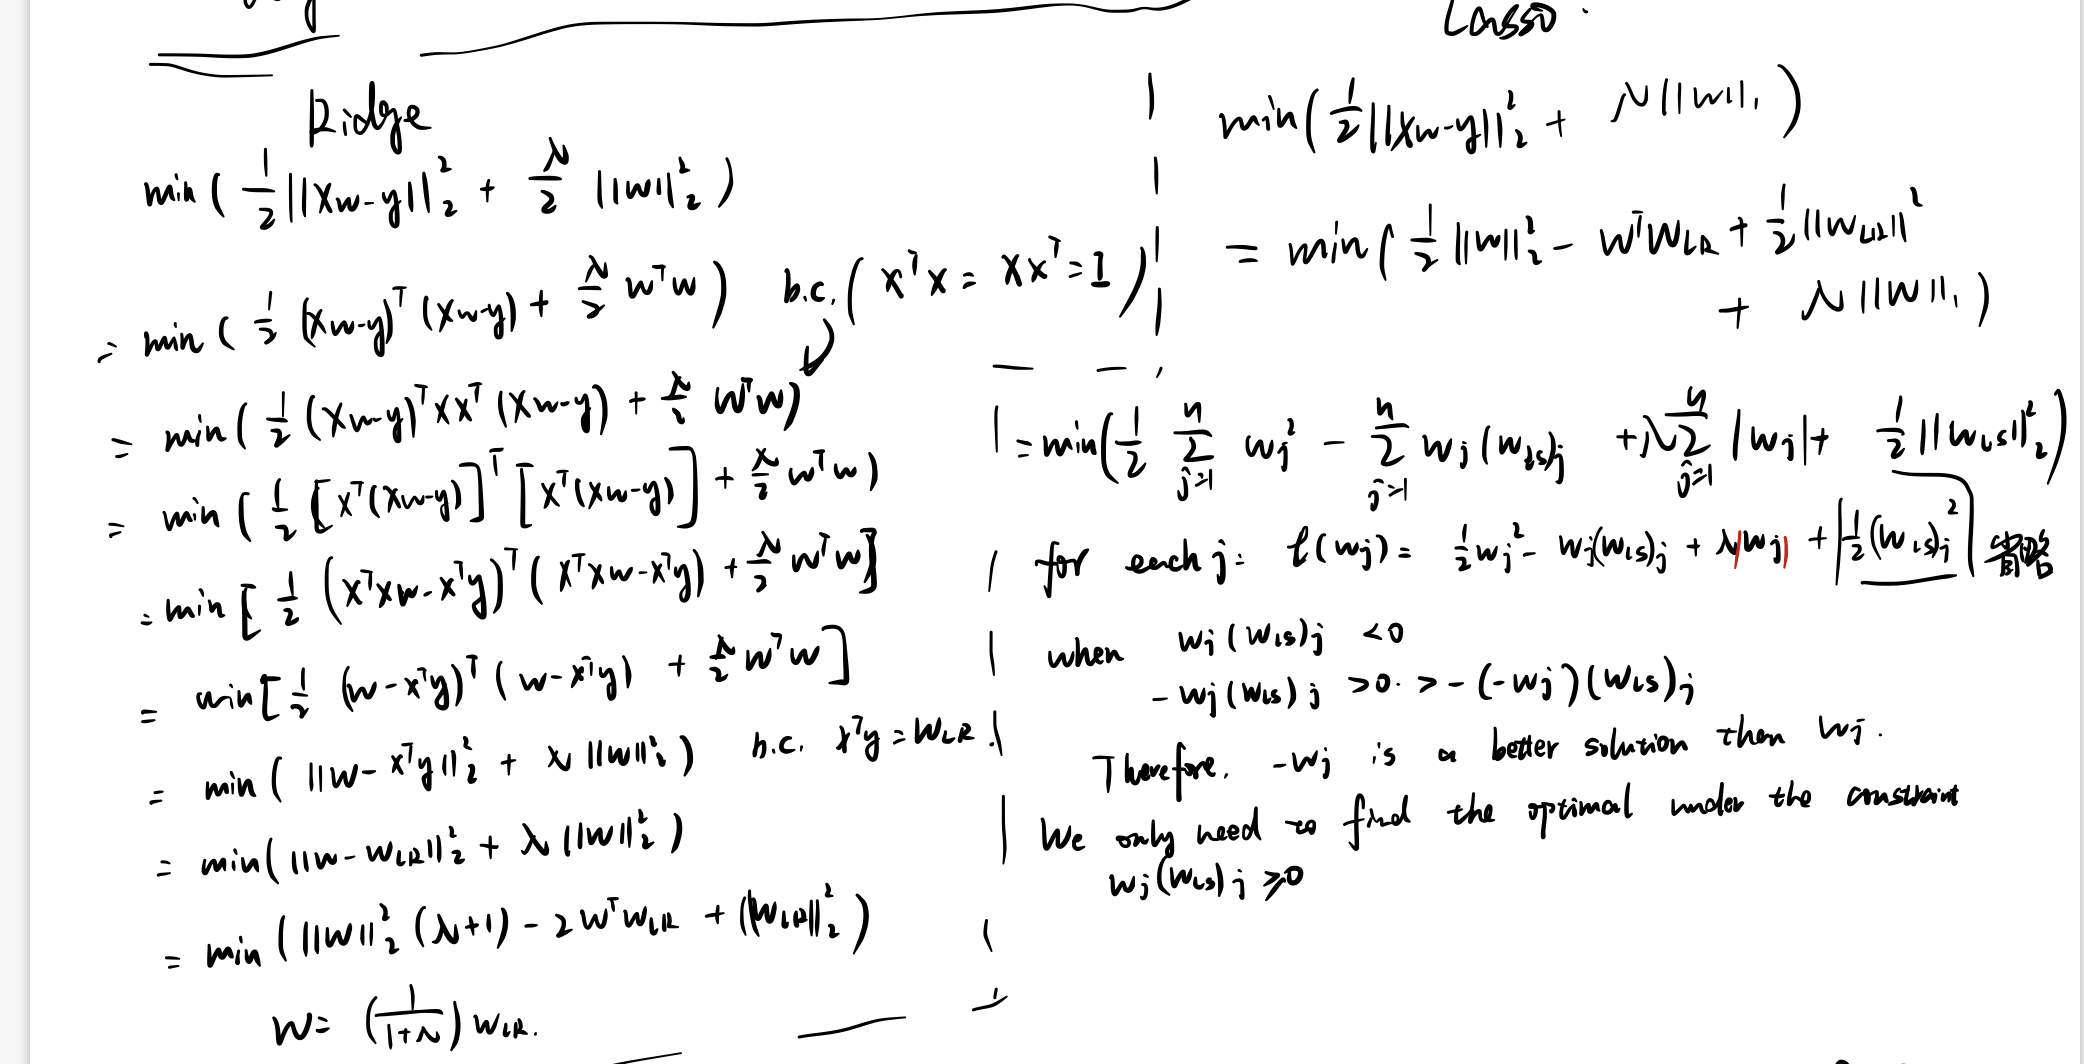 Ridge
min ( 1/2 ||Xw-y||₂² + λ/2 ||w||₂² )
= min ( 1/2 (Xw-y)ᵀ (Xw-y) + λ/2 wᵀw ) b.c. ( XᵀX = XXᵀ = I )
= min ( 1/2 (Xw-y)ᵀ XXᵀ (Xw-y) + λ/2 wᵀw )
= min ( 1/2 [Xᵀ(Xw-y)]ᵀ [Xᵀ(Xw-y)] + λ/2 wᵀw )
= min [ 1/2 (XᵀXw-Xᵀy)ᵀ ( XᵀXw-Xᵀy) + λ/2 wᵀw ]
= min [ 1/2 (w-Xᵀy)ᵀ ( w-Xᵀy) + λ/2 wᵀw ]
= min ( ||w-Xᵀy||₂² + λ ||w||₂² ) b.c. Xᵀy = w_LR.
= min( ||w-w_LR||₂² + λ ||w||₂² )
= min ( ||w||₂² (λ+1) - 2 wᵀw_LR + ||w_LR||₂² )
w = (1/(1+λ)) w_LR.
Lasso.
min( 1/2 ||Xw-y||₂² + λ||w||₁ )
= min( 1/2 ||w||₂² - wᵀw_LR + 1/2 ||w_LR||²
+ λ ||w||₁ )
= min( 1/2 Σⁿ_{j=1} wj² - Σⁿ_{j=1} wj (w_LS)j + λ Σⁿ_{j=1} |wj| + 1/2 ||w_LS||₂² )
for each j: ℓ(wj) = 1/2 wj² - wj(w_LS)j + λ|wj| + 1/2 (w_LS)j²
when wj (w_LS)j <0
- wj (w_LS) j >0. > - (-wj) (w_LS)j
Therefore. -wj is a better solution then wj.
We only need to find the optimal under the constraint
wj (w_LS) j ⩾0